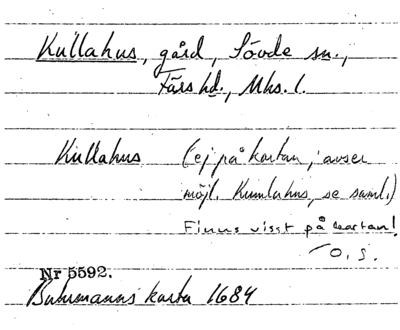 Kullahus, gård, Sövde sn.,
Färs hd., Mhs. l.
Kullahus (ej på kartan, avser
möjl. Kumlahus, se saml.)
Finns visst på kartan!
O.S.
Nr 5592.
Buhrmanns karta 1684